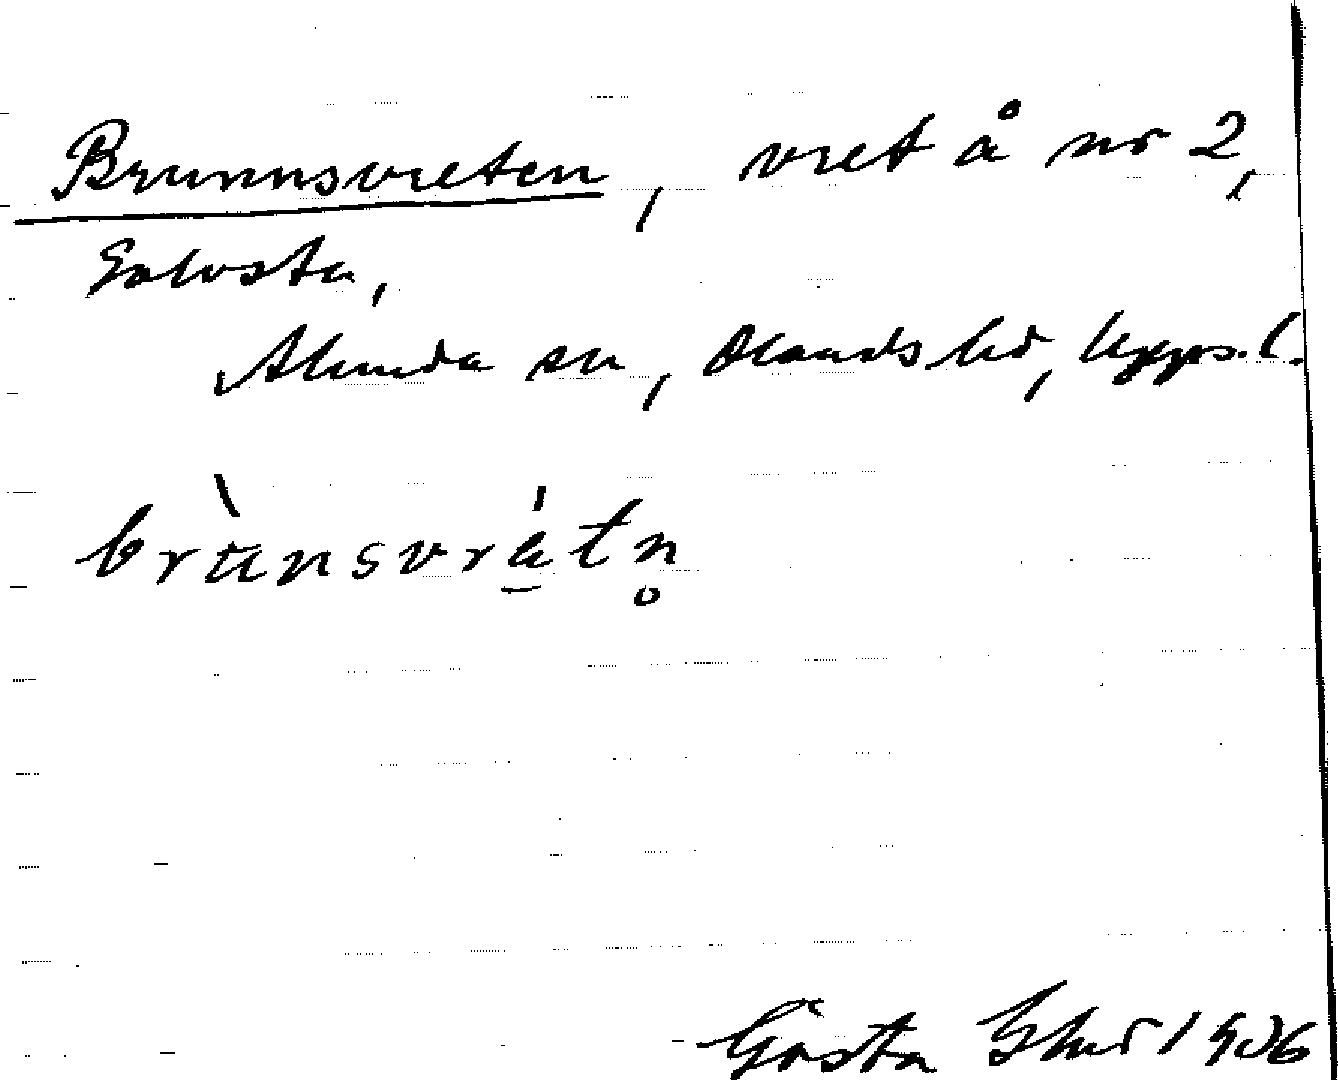 Brunnsvreten, vret å nr 2,
Golvsta,
Alunda sn, Olands hd, Upps. l.
brùnsvrätn̥
Gösta